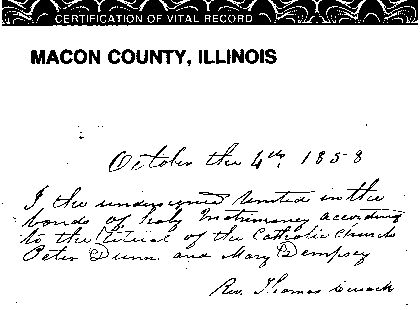 CERTIFICATION OF VITAL RECORD
MACON COUNTY, ILLINOIS
October the 4th, 1858
I the undersigned United in the
bonds of holy Matrimony according
to the Ritual of the Catholic Church
Peter Dunn and Mary Dempsey
Rev. Thomas Cusack